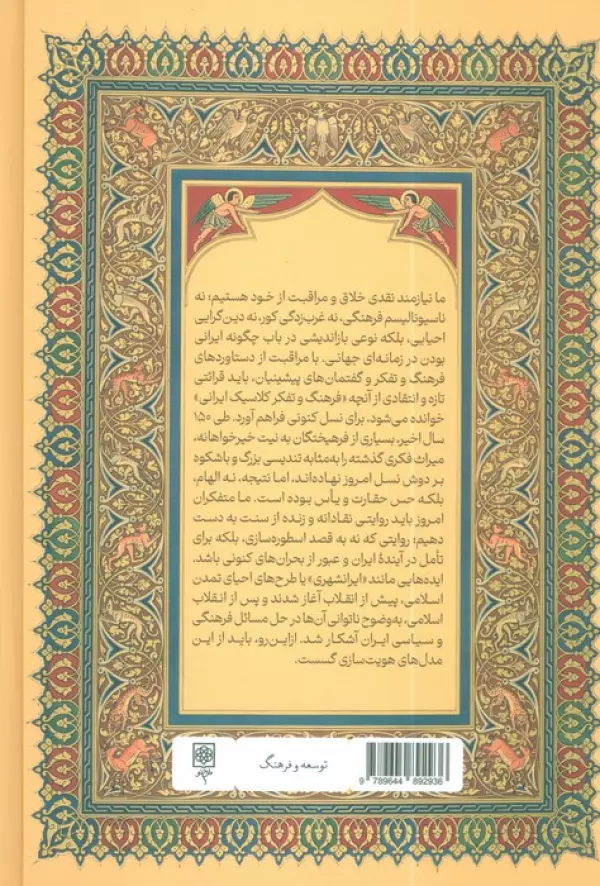 ما نیازمند نقدی خلاق و مراقبت از خود هستیم؛ نه
ناسیونالیسم فرهنگی، نه غرب‌زدگی کور، نه دین‌گرایی
احیایی، بلکه نوعی بازاندیشی در باب چگونه ایرانی
بودن در زمانه‌ای جهانی. با مراقبت از دستاوردهای
فرهنگ و تفکر و گفتمان‌های پیشینیان، باید قرائتی
تازه و انتقادی از آنچه «فرهنگ و تفکر کلاسیک ایرانی»
خوانده می‌شود، برای نسل کنونی فراهم آورد. طی ۱۵۰
سال اخیر، بسیاری از فرهیختگان به نیت خیرخواهانه،
میراث فکری گذشته را به‌مثابه تندیسی بزرگ و باشکوه
بر دوش نسل امروز نهاده‌اند، اما نتیجه، نه الهام،
بلکه حس حقارت و یأس بوده است. ما متفکران
امروز باید روایتی نقادانه و زنده از سنت به دست
دهیم؛ روایتی که نه به قصد اسطوره‌سازی، بلکه برای
تأمل در آیندهٔ ایران و عبور از بحران‌های کنونی باشد.
ایده‌هایی مانند «ایرانشهری» یا طرح‌های احیای تمدن
اسلامی، پیش از انقلاب آغاز شدند و پس از انقلاب
اسلامی، به‌وضوح ناتوانی آن‌ها در حل مسائل فرهنگی
و سیاسی ایران آشکار شد. ازاین‌رو، باید از این
مدل‌های هویت‌سازی گسست.
توسعه و فرهنگ
9 789644 892936